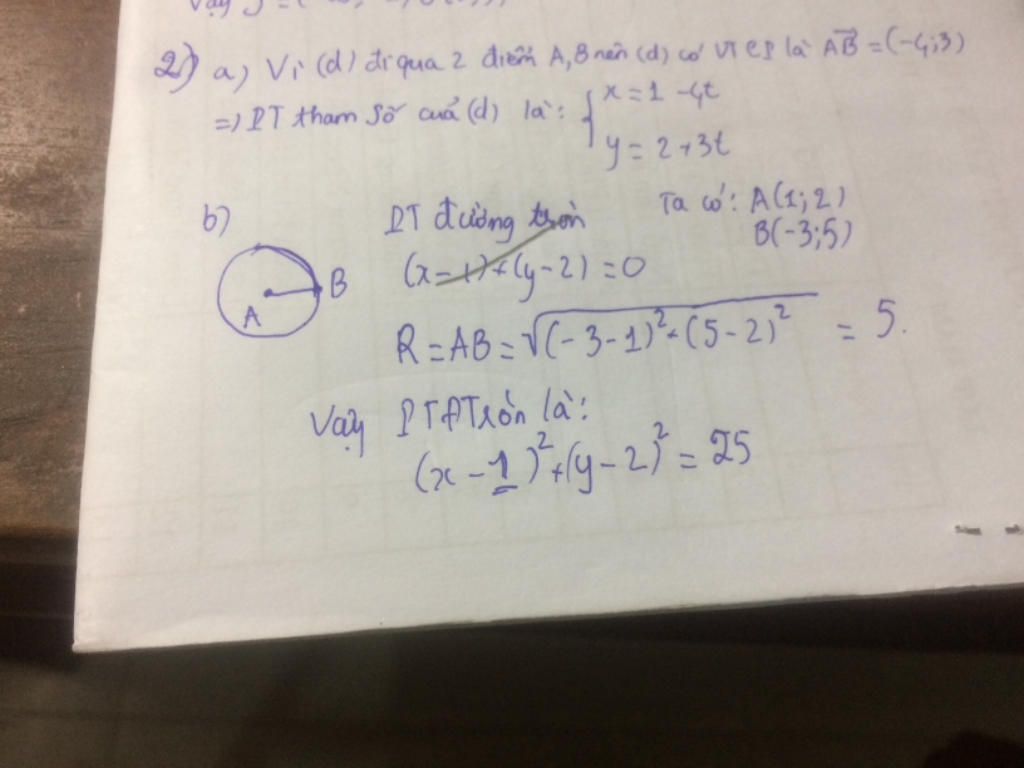 2) a) Vì (d) đi qua 2 điểm A, B nên (d) có VTCP là AB = (-4;3)
=) PT tham số cuả (d) là: { x = 1 - 4t
y = 2 + 3t
b) PT đường tròn Ta có: A(1;2)
B(-3;5)
(x - 1) + (y - 2) = 0
B
A
R = AB = √(-3-1)² + (5-2)² = 5.
Vậy PTĐTròn là:
(x - 1)² + (y - 2)² = 25